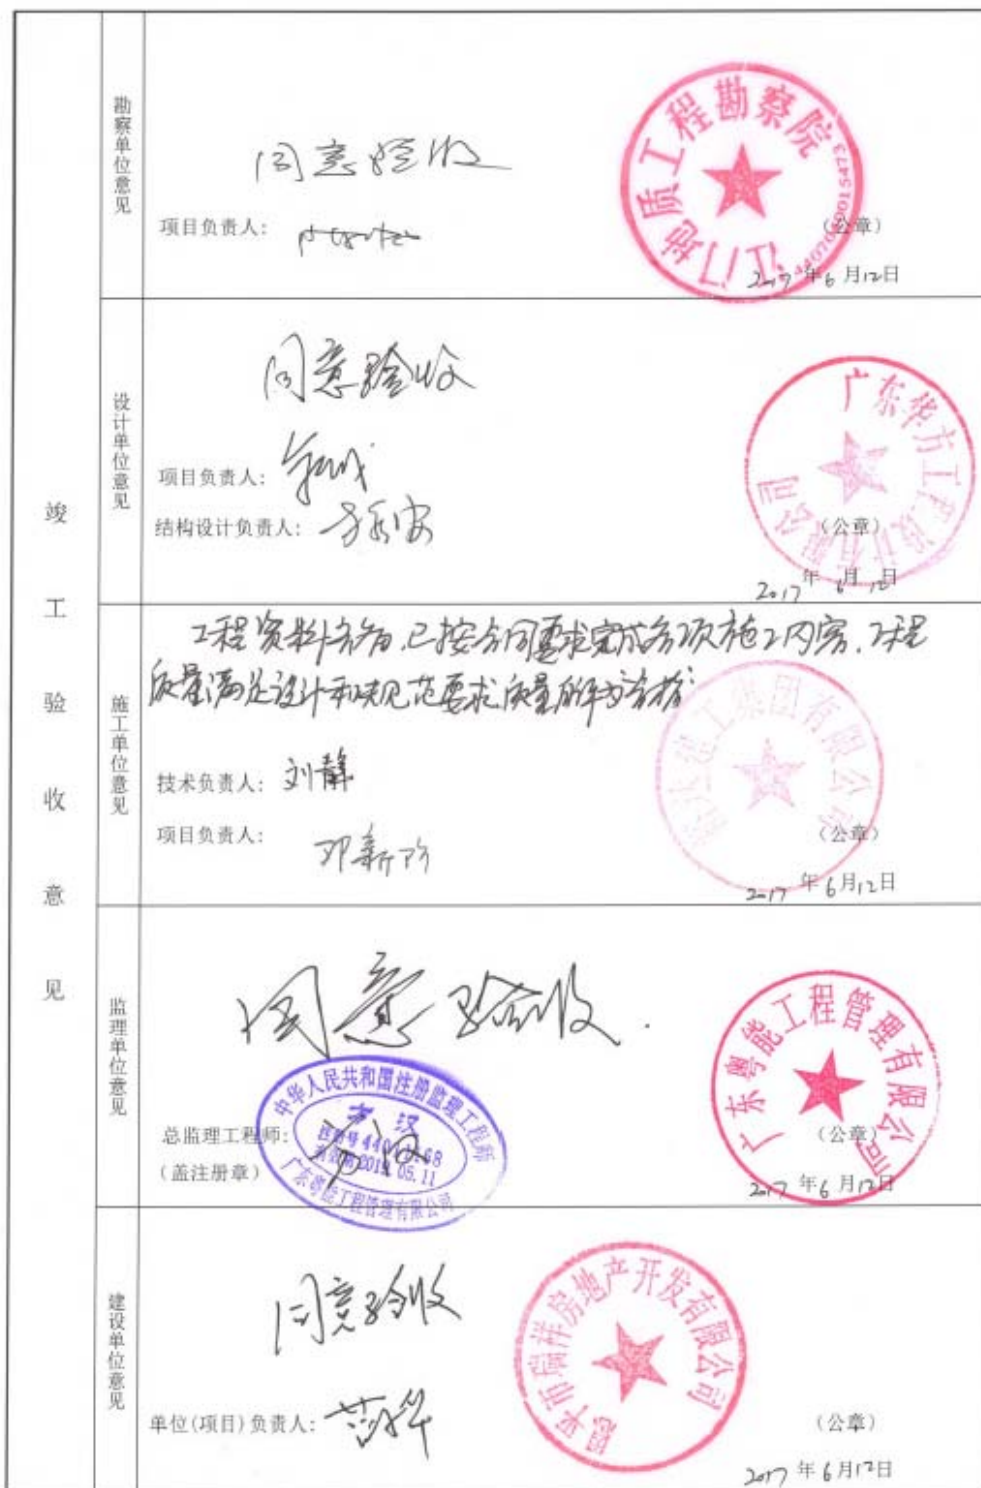 竣工验收意见
勘察单位意见
同意验收
项目负责人:
江门地质工程勘察院
(公章)
2017年6月12日
设计单位意见
同意验收
项目负责人:
结构设计负责人:
广东华方工程设计有限公司
(公章)
2017年6月12日
施工单位意见
工程资料齐备,已按合同要求完成各项施工内容,工程
质量满足设计和规范要求,质量评为合格
技术负责人: 刘静
项目负责人: 邓新
建工集团有限公司
(公章)
2017年6月12日
监理单位意见
同意验收.
中华人民共和国注册监理工程师
总监理工程师:
(盖注册章)
05.11
广东粤能工程管理有限公司
广东粤能工程管理有限公司
(公章)
2017年6月12日
建设单位意见
同意验收
单位(项目)负责人:
恩平市瑞祥房地产开发有限公司
(公章)
2017年6月12日